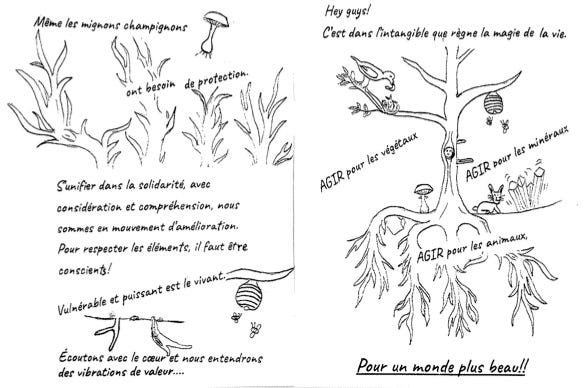 Même les mignons champignons
ont besoin de protection.
S'unifier dans la solidarité, avec
considération et compréhension, nous
sommes en mouvement d'amélioration.
Pour respecter les éléments, il faut être
conscients!
Vulnérable et puissant est le vivant.
Écoutons avec le cœur et nous entendrons
des vibrations de valeur....
Hey guys!
C'est dans l'intangible que règne la magie de la vie.
AGIR pour les végétaux
AGIR pour les minéraux
AGIR pour les animaux,
Pour un monde plus beau!!